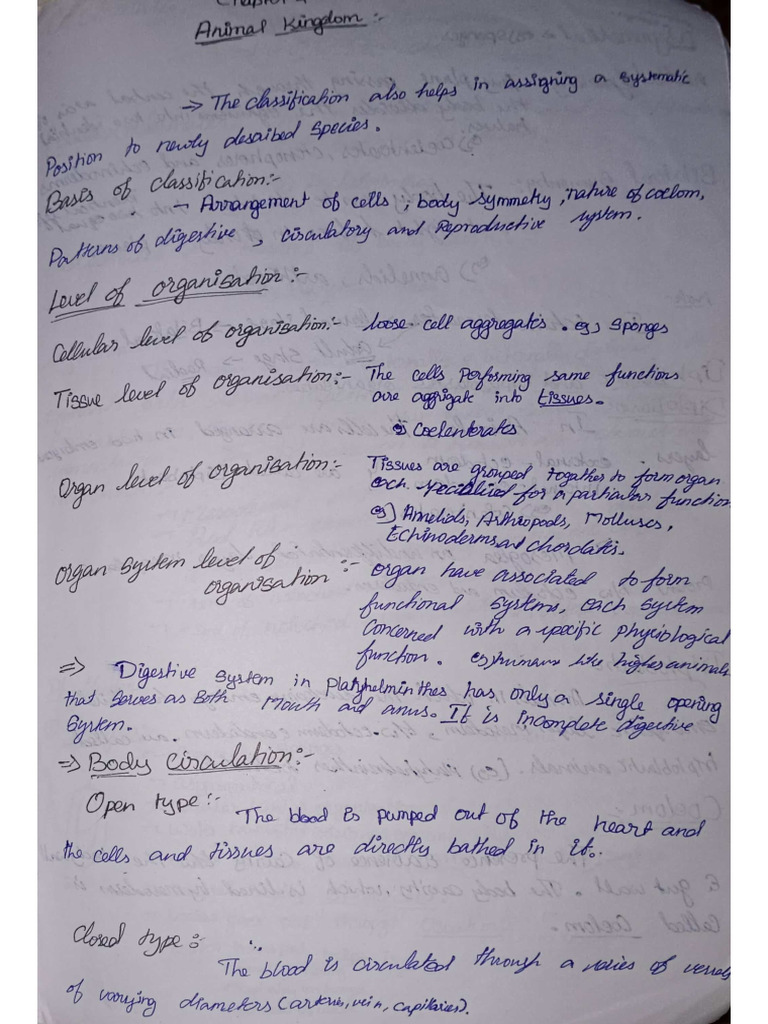 Animal Kingdom :-
→ The classification also helps in assigning a systematic
Position to newly desaibed Species.
Basis of classification:-
→ Arrangement of cells, body symmetry, nature of coelom,
Patterns of digestive, circulatory and Reproductive system.
Level of organisation:-
Cellular level of organisation:- loose cell aggregates. eg) sponges
Tissue level of organisation:- The cells Performing same functions
are aggrigate into tissues.
eg) Coelenterates
Organ level of organisation:- Tissues are grouped together to form organ
each specialized for a particular function
eg) Annelids, Arthropods, Molluscs,
Echinoderms and chordates.
Organ system level of organisation :- organ have associated to form
functional systems, each system
concerned with a specific physiological
function. eg) humans like higher animals
⇒ Digestive system in Platyhelminthes has only a single opening
that serves as Both Mouth and anus. It is incomplete digestive
System.
⇒ Body Circulation:-
Open type:-
The blood is pumped out of the heart and
the cells and tissues are directly bathed in it.
Closed type:-
The blood is circulated through a series of vessels
of varying diameters (arteries, vein, capilaries).